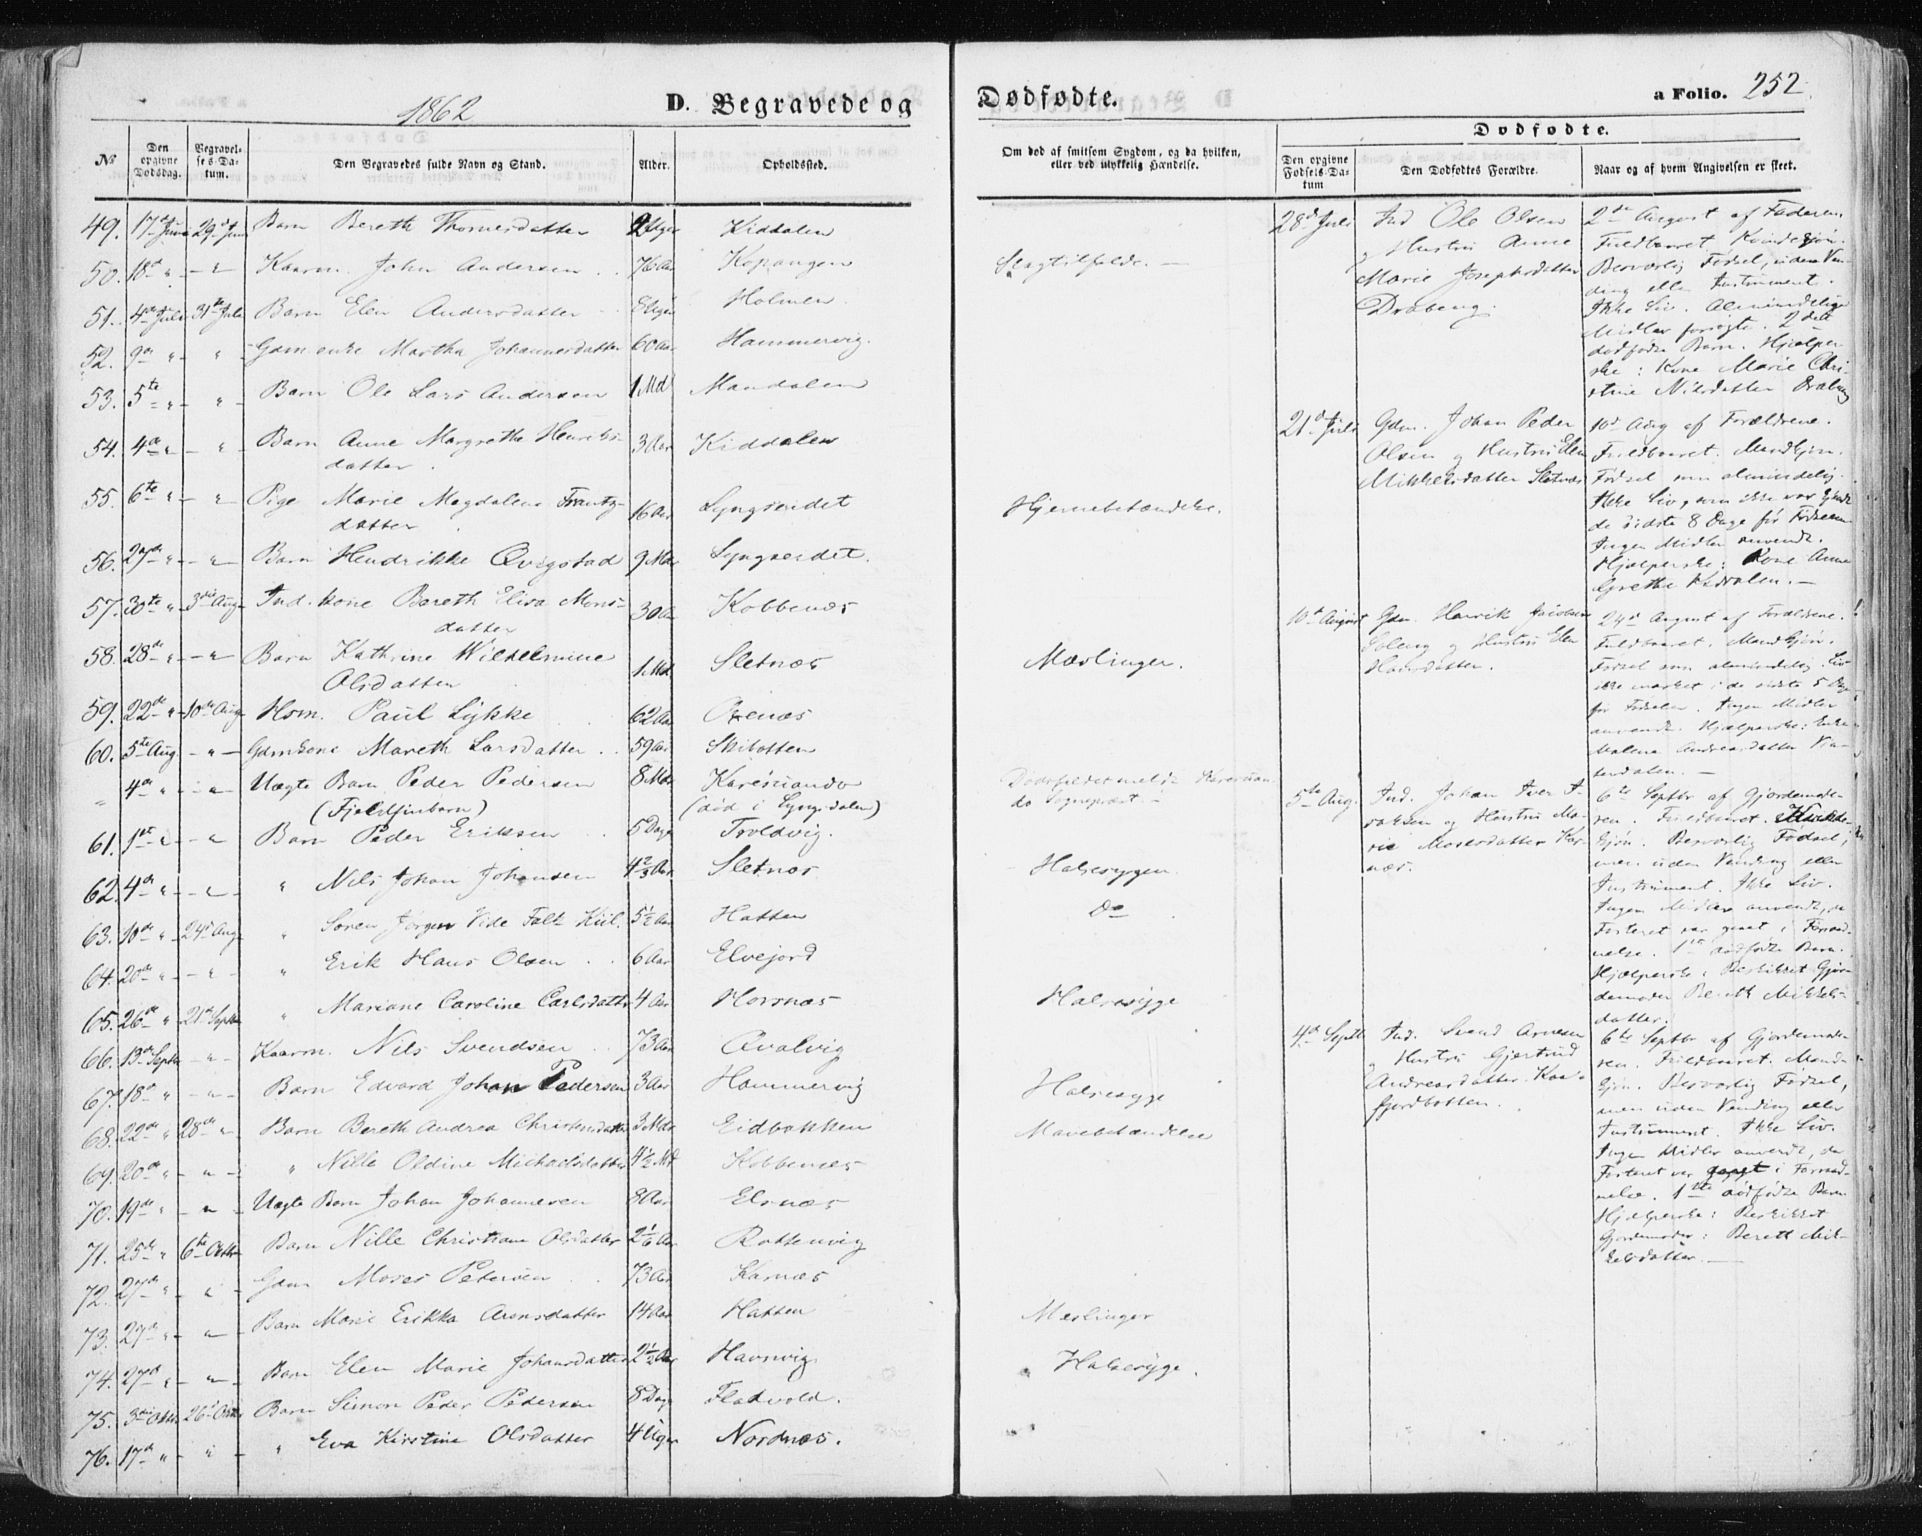 1862
D. Begravede og Dødfødte.
a Folio. 252.
Dødfødte.
№ Den opgivne Dødsdag. Begravelses-Datum. Den Begravedes fulde Navn og Stand. Alder. Opholdssted. Om død af smitsom Sygdom, og da hvilken, eller ved ulykkelig Hændelse. Den opgivne Fødsels-Datum Den Dødfødtes Forældre. Naar og af hvem Angivelsen er skeet.
49. 17d Juni 29d Juni Barn Bereth Thomesdatter 2 Uger Kiddalen
50. 18d " - " - Kaarm. John Andersen 76 Aar Kopangen Slagtilfælde. -
51. 4de Juli 31te Juli Barn Elen Andersdatter 8 Uger Holmen
52. 9de " " Gdm. enke Martha Johannesdatter 60 Aar Hammervig.
53. 5te " " Barn Ole Lars Andersen 1 Md Mandalen
54. 4de " " Barn Anne Margrethe Henriks-
datter. 3 Aar Kiddalen
55. 6te " " Pige Marie Magdalena Frantz-
datter 16 Aar Lyngseidet Hjernebetændelse.
56. 29de " - " - Barn Hendrikke Qvigstad 9 Mdr Lyngseidet.
57. 30te " 3die Aug Ind. kone Bereth Elisa Mons-
datter 30 Aar Kobbenæs
58. 28de " - " - Barn Kathrine Wilhelmine
Olsdatter 1 Md Sletnæs Mæslinger.
59. 22de " 10de Aug Hsm. Paul Lykke 62 Aar Oxenæs
60. 5te Aug. - " - Gdmkone Mareth Larsdatter 59 Aar Skibotten
" 4de " - " - Uægte Barn Peder Pedersen 8 Mdr Karesuando
(Fjeldfinbarn) (død i Lyngsdalen)
61. 1st " - " Barn Peder Eriksen 5 Dage Troldvig.
62. 4de " - " - " Nils Johan Johansen 4 2/3 Aar Sletnæs Halssygen
63. 10de " 24d Aug " Søren Jørgen Vide Falk Kiil. 5 1/2 Aar Hatten Do
64. 20de " - " - " Erik Hans Olsen 6 Aar Elvejord
65. 26de " 21de Septbr " Mariane Caroline Carlsdatter 4 Aar Horsnæs Halssyge
66. 13de Septbr - " - Kaarm. Nils Svendsen 73 Aar Qvalvig
67. 18de " - " - Barn Edvard Johan Pedersen 3 Aar Hammervig Halssyge
68. 22de " 28de " Barn Bereth Andrea Christensdatter 3 Mdr Eidbakken Mavebetændelse
69. 20de " - " - " Nille Oldine Michaelsdatter 4 1/2 Md Kobbenæs
70. 19de " - " - Uægte Barn Johan Johannesen 8 Aar Elsnæs
71. 25de " 6te Octbr Barn Nille Christiane Olsdatter 2 1/6 Aar Rottenvig
72. 27de " " Gdm Moses Petersen 73 Aar Karnæs
73. 27de " - " - Barn Marie Erikka Arensdatter 14 Aar Hatten Mæslinger
74. 27de " - " - Barn Elen Marie Johansdatter 2 1/2 Aar Havnvig Halssyge.
75. 3die Octbr 26de Octbr Barn Simon Peder Pedersen 8 Dage Fladvold.
76. 17de " " " Eva Kirstine Olsdatter 4 Uger Nordnæs.
28d Juli Ind Ole Olsen
og Hustru Anne
Marie Josephsdatter
Draberg.
2den August af Faderen.
Fuldbaaret Kvindekjøn.
Besværlig Fødsel, uden Ven-
ding eller Instrument.
Ikke Liv. Almindelige
Midler forsøgte. 2det
dødfødte Barn. Hjælper-
ske: Kone Marie Chri-
stine Nilsdatter Draberg
21d Juli Gdm. Johan Peder
Olsen og Hustru Elen
Mikkelsdatter Sletnæs
10d Aug af Forældrene.
Fuldbaaret. Mandkjøn.
Fødsel som almindelig.
Ikke Liv, som ikke var kjendt
de sidste 8 Dage før Fødselen
Ingen Midler anvendt.
Hjælperske: Kone Anne
Grethe Kiddalen. -
10d August Gdm. Henrik Jacobsen
og Hustru Elen
Hansdatter.
24d August af Forældrene.
Fuldbaaret. Mandkjøn.
Fødsel som almindelig. Liv
ikke mærket i de sidste 5 Dage
før Fødselen. Ingen Midler
anvendt. Hjælperske: Enke
Malena Andreasdatter
5te Aug. Ind. Johan Iver
og Hustru Ma-
rie Mosesdatter Kar-
næs.
6te Septbr af Gjordemode-
ren. Fuldbaaret. Kvinde-
kjøn. Besværlig Fødsel,
men uden Vending eller
Instrument. Ikke Liv.
Ingen Midler anvendt, da
Fosteret var gaaet i Forraad-
nelse. 1ste dødfødte Barn.
Hjælperske: Beskikket Gjor-
demoder Bereth Mikkels-
datter.
4de Septbr Ind. Svend Arnesen
og Hustru Gjertrud
Andreasdatter Kaa-
fjordbotten.
6te Septbr af Gjordemode-
ren. Fuldbaaret. Mand-
kjøn. Besværlig Fødsel,
men uden Vending eller
Instrument. Ikke Liv.
Ingen Midler anvendt, da
Fosteret var gaaet i Forraad-
nelse. 1ste dødfødte Barn
Hjælperske: Beskikket
Gjordemoder: Berett Mik-
kelsdatter. -